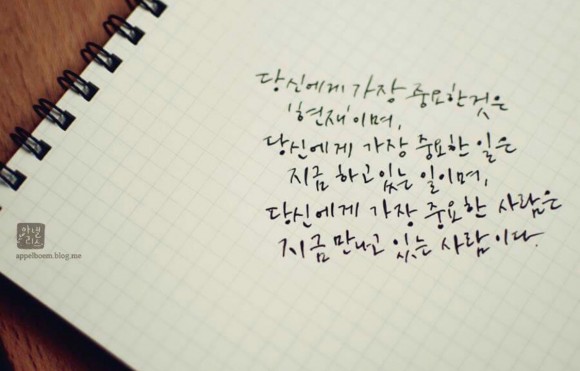 당신에게 가장 중요한것은
'현재'이며,
당신에게 가장 중요한 일은
지금 하고있는 일이며,
당신에게 가장 중요한 사람은
지금 만나고 있는 사람이다.
appelboom.blog.me